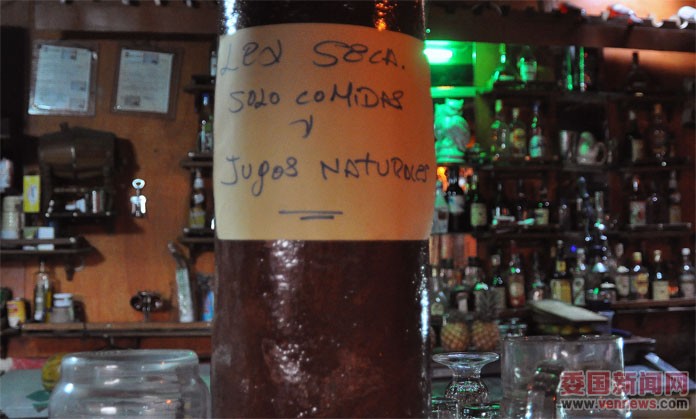 LEY SECA.
SOLO COMIDAS
Y
JUGOS NATURALES
委国新闻网
www.venrews.com